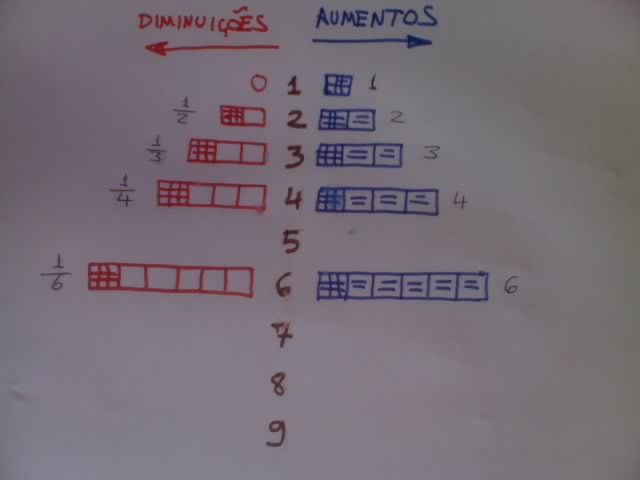 DIMINUIÇÕES AUMENTOS
0 1 1
1/2 2 2
1/3 3 3
1/4 4 4
5
1/6 6 6
7
8
9